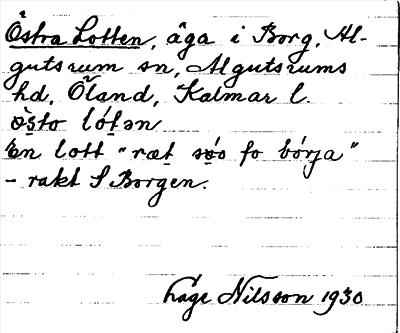 Östra Lotten, äga i Borg, Al-
gutsrum sn, Algutsrums
hd, Öland, Kalmar l.
ö̀s̱to lót̠ən
En lott "ræt sø̀o fo bórja"
– rakt S Borgen.
Åge Nilsson 1930